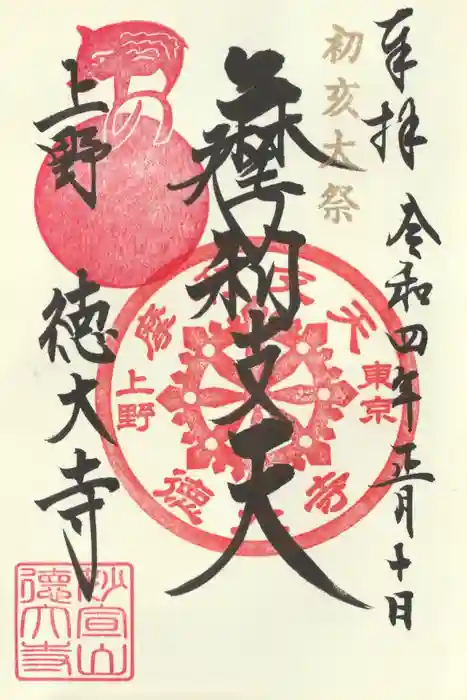 奉拝 令和四年正月十日
初亥大祭
摩利支天
上野 徳大寺
摩利支天
東京
上野
徳大寺
妙宣山
徳大寺